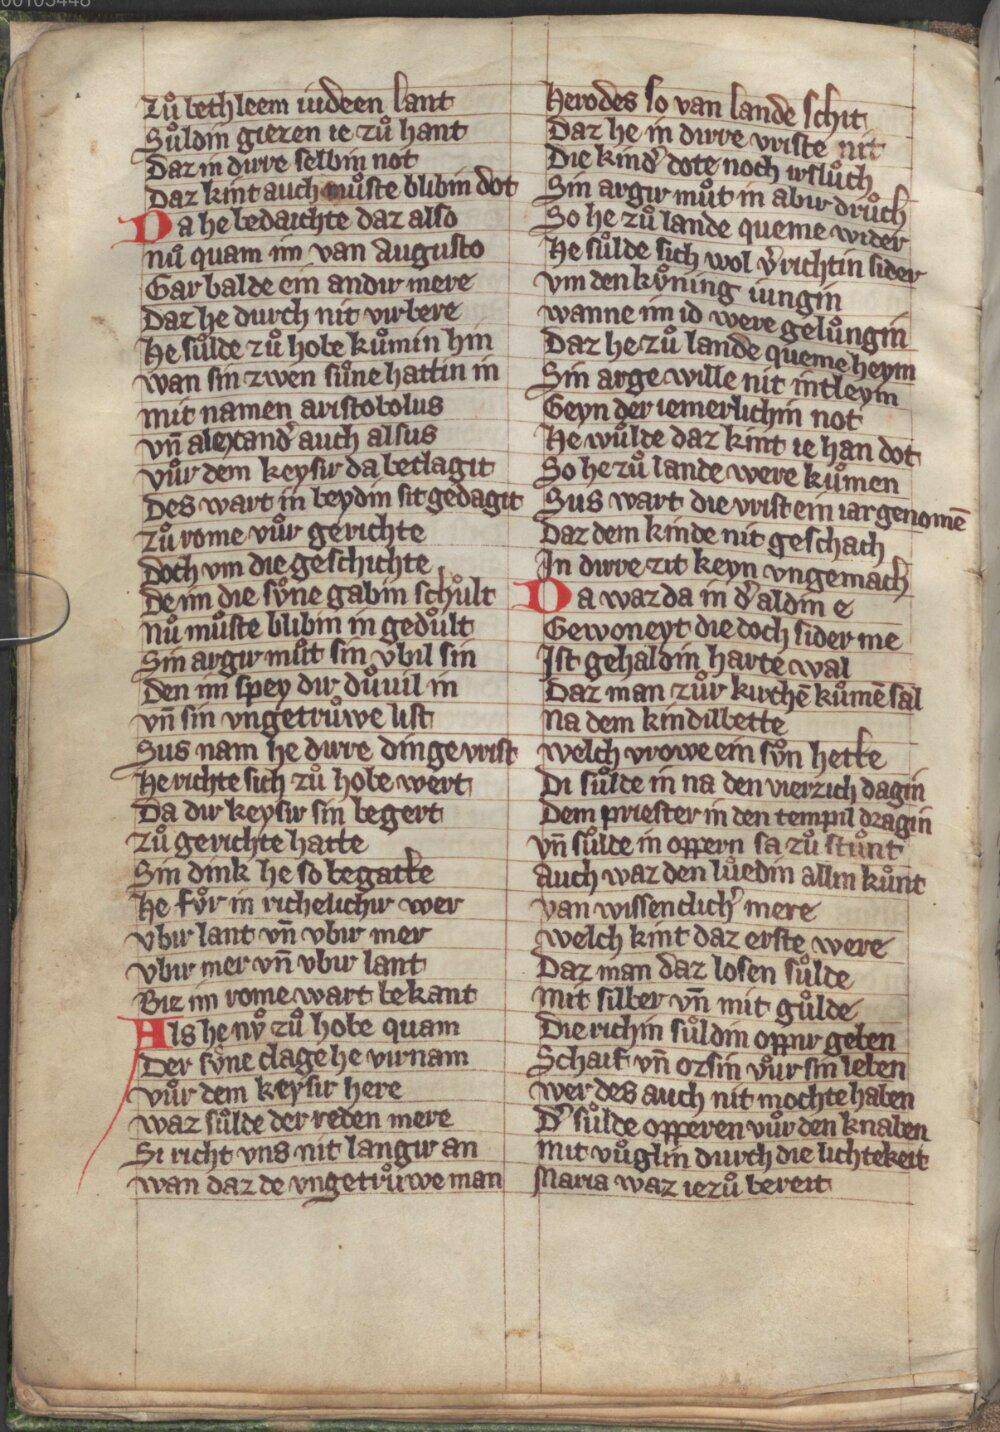 Zuͦ bethleem iudeen lant
Suͦldin giezen ie zuͦ hant
Daz in dirre selbin not
Daz kint auch muͦste blibin dot
Da he bedaichte daz also
nuͦ quam im van Augusto
Gar balde ein andir mere
Daz he durch nit virbere
He suͦlde zuͦ hobe kuͦmin hin
wan sin zwen suͦne hattin in
mit namen aristobolus
vn̄ alexand̕ auch alsus
vuͦr dem keysir da beclagit
Des wart in beydin sit gedagit
zuͦ rome vuͦr gerichte
Doch vm die geschichte
De im die soͤne gabin schuͦlt
nuͦ muͦste blibin in geduͦlt
Sin argir muͦt sin vbil sin
Den im spey dir duͦuil in
vn̄ sin vngetruͦwe list
Sus nam he dirre dinge vrist
He richte sich zuͦ hobe wert
Da dir keysir sin begert
zuͦ gerichte hatte
Sin dink he so begatte
He foͤr in richelichir wer
vbir lant vn̄ vbir mer
vbir mer vn̄ vbir lant
Biz im rome wart bekant
Als he nvͦ zuͦ hobe quam
Der svͦne clage he virnam
vuͦr dem keysir here
waz suͦlde der reden mere
Si richt vns nit langir an
wan daz de vngetruͦwe man
Herodes so van lande schit
Daz he in dirre vriste nit
Die kind̕ dote noch irsluͦch
Sin argir muͦt in abir druͦch
So he zuͦ lande queme wider
He suͦlde sich wol v̕richtin sider
vm den kvͦning iungin
wanne im id were geluͦngin
Daz he zuͦ lande queme heym
Sin arge wille nit intleym
Geyn der iemerlichin not
He wuͦlde daz kint ie han dot
So he zuͦ lande were kuͦmen
Sus wart die vrist ein iar genomē
Daz dem kinde nit geschach
In dirre zit keyn vngemach
Da waz da in d̕ aldin e
Gewoneyt die doch sider me
Ist gehaldin harte wal
Daz man zuͦr kirchē kuͦmē sal
Na dem kindilbette
welch vrowe ein svͦn hette
Di suͦlde in na den vierzich dagin
Dem priester in den tempil dragin
vn̄ suͦlde in oppern sa zuͦ stuͦnt
Auch waz den luͦedin allin kuͦnt
van wissentlich̕ mere
welch kint daz erste were
Daz man daz losen suͦlde
mit silber vn̄ mit guͦlde
Die richin suͦldin oppir geben
Schaif vn̄ ozsin vuͦr sin leben
wer des auch nit mochte haben
D̕ suͦlde opperen vuͦr den knaben
mit vuͦglin durch die lichtekeit
Maria waz iezuͦ bereit